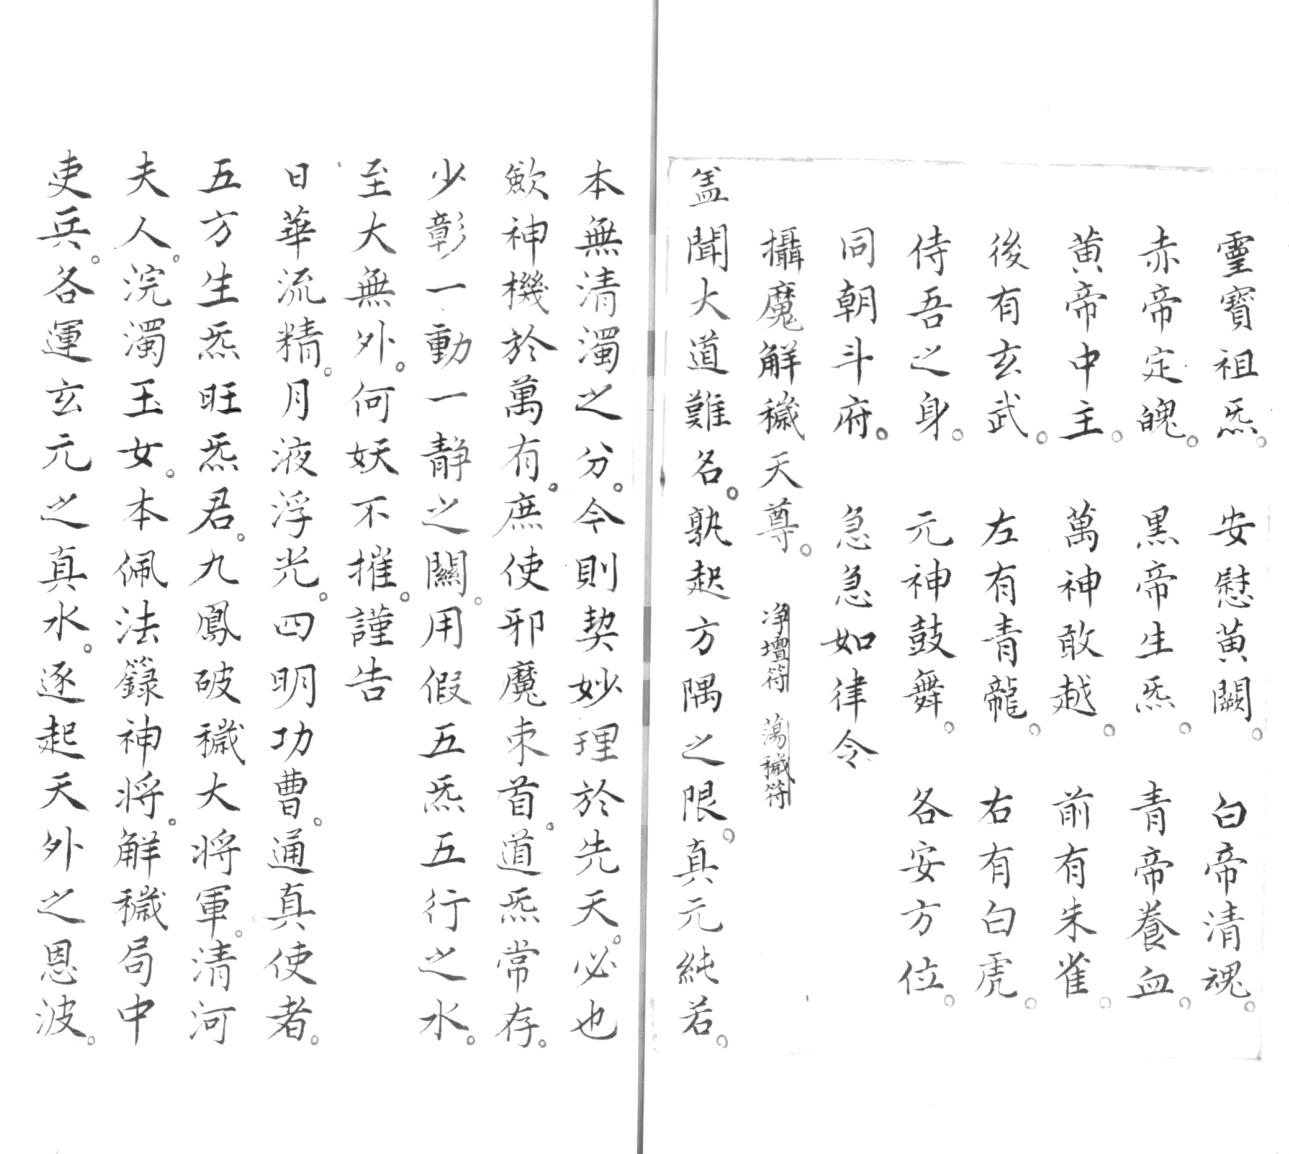 靈寶祖炁。安慰黄闕。白帝清魂。
赤帝定魄。黑帝生炁。青帝養血。
黄帝中主。萬神敢越。前有朱雀。
後有玄武。左有青龍。右有白虎。
侍吾之身。元神鼓舞。各安方位。
同朝斗府。急急如律令
攝魔解穢天尊。净壇符 蕩穢符
盖聞大道難名。孰起方隅之限。真元純若。
本無清濁之分。今則契妙理於先天。必也
歛神機於萬有。庶使邪魔束首。道炁常存。
少彰一動一静之關。用假五炁五行之水。
至大無外。何妖不摧。謹告
日華流精。月液浮光。四明功曹。通真使者。
五方生炁旺炁君。九鳳破穢大将軍。清河
夫人。浣濁玉女。本佩法籙神将。解穢局中
吏兵。各運玄元之真水。逐起天外之恩波。